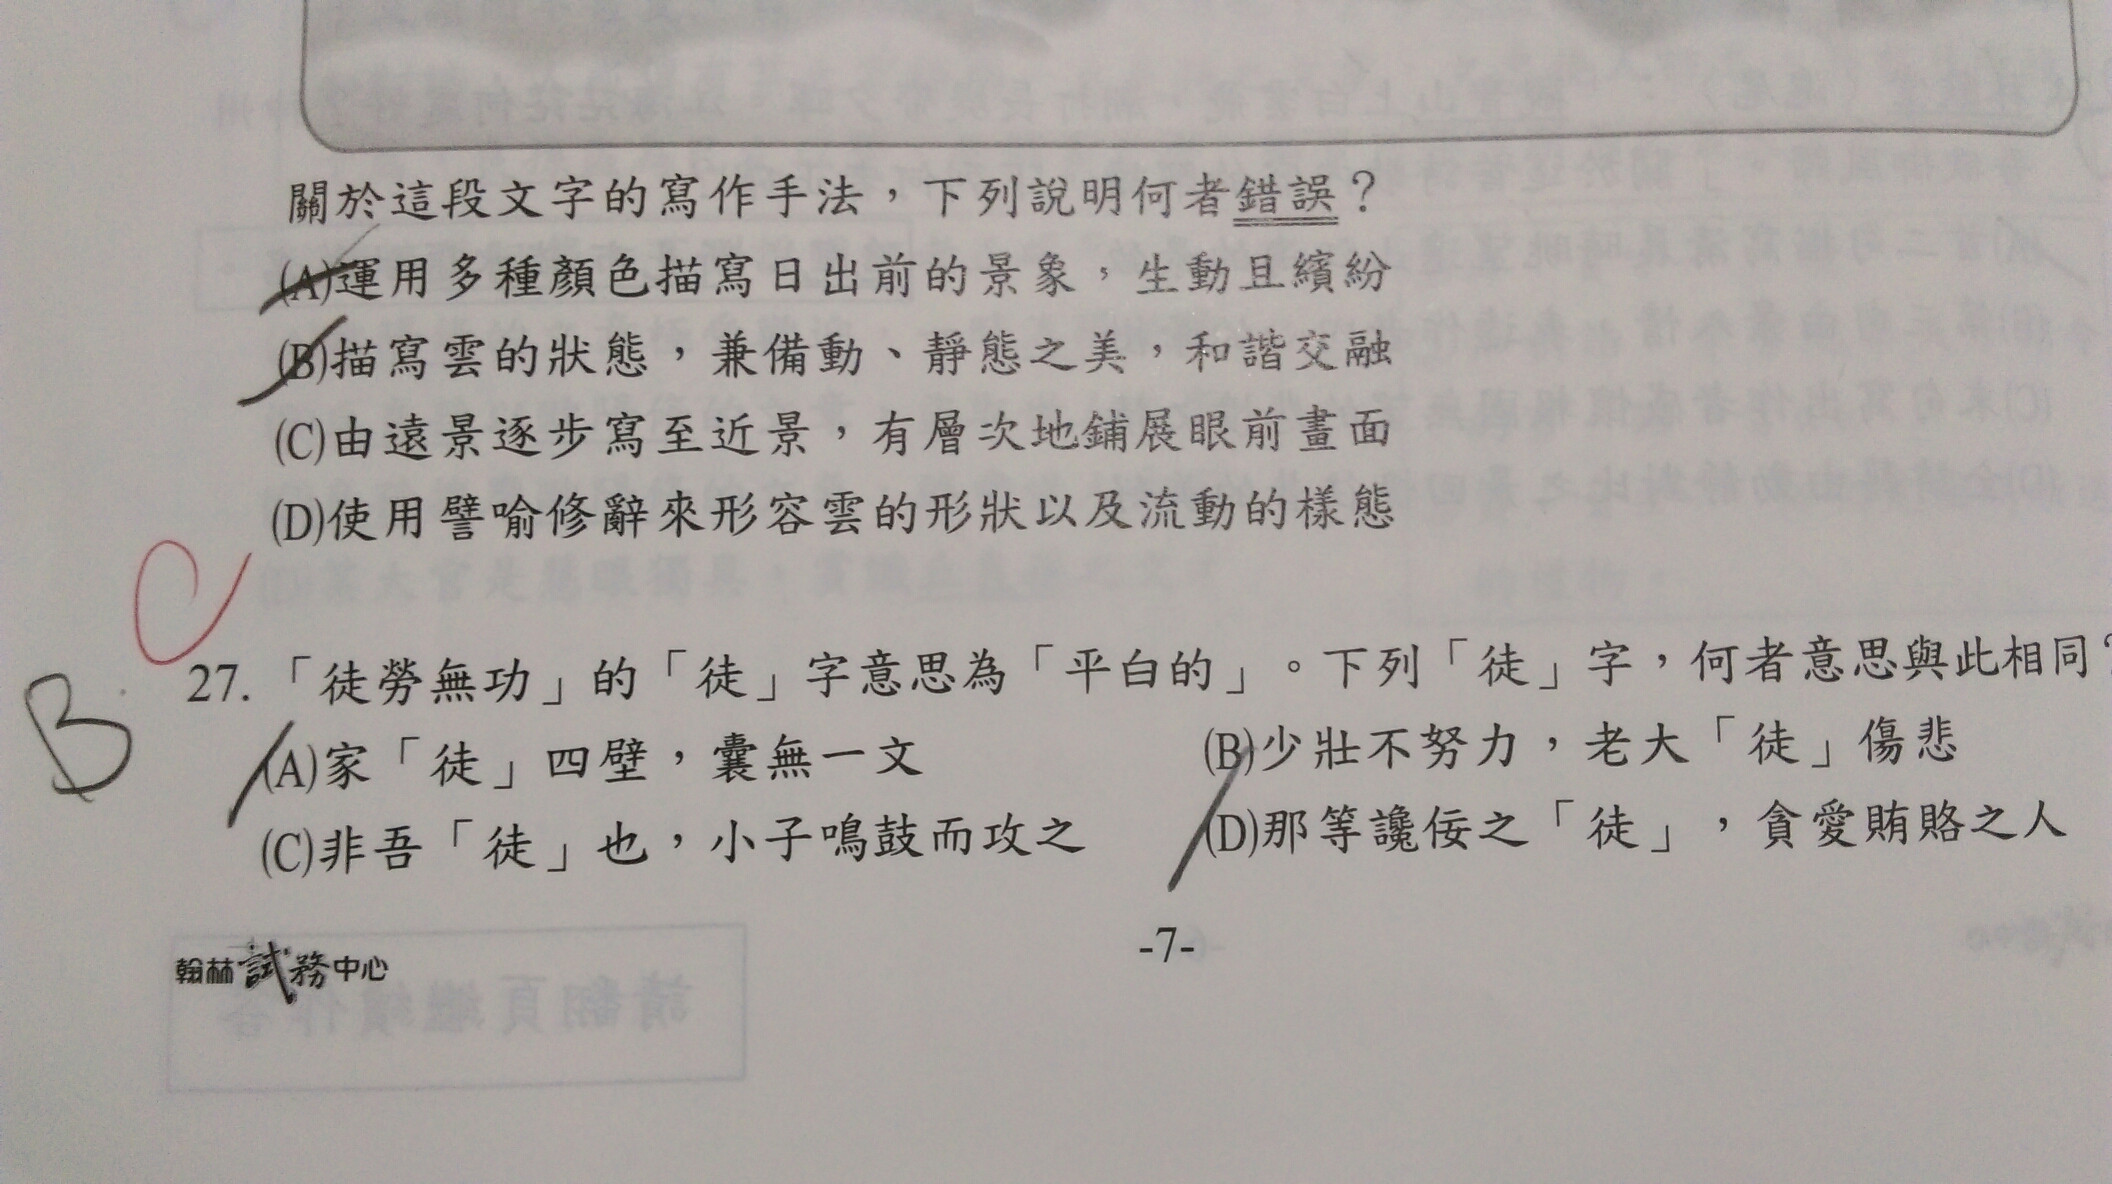 關於這段文字的寫作手法，下列說明何者錯誤？
(A)運用多種顏色描寫日出前的景象，生動且繽紛
(B)描寫雲的狀態，兼備動、靜態之美，和諧交融
(C)由遠景逐步寫至近景，有層次地鋪展眼前畫面
(D)使用譬喻修辭來形容雲的形狀以及流動的樣態
C
B
27.「徒勞無功」的「徒」字意思為「平白的」。下列「徒」字，何者意思與此相同？
(A)家「徒」四壁，囊無一文 (B)少壯不努力，老大「徒」傷悲
(C)非吾「徒」也，小子鳴鼓而攻之 (D)那等讒佞之「徒」，貪愛賄賂之人
翰林試務中心
-7-
請翻頁繼續作答